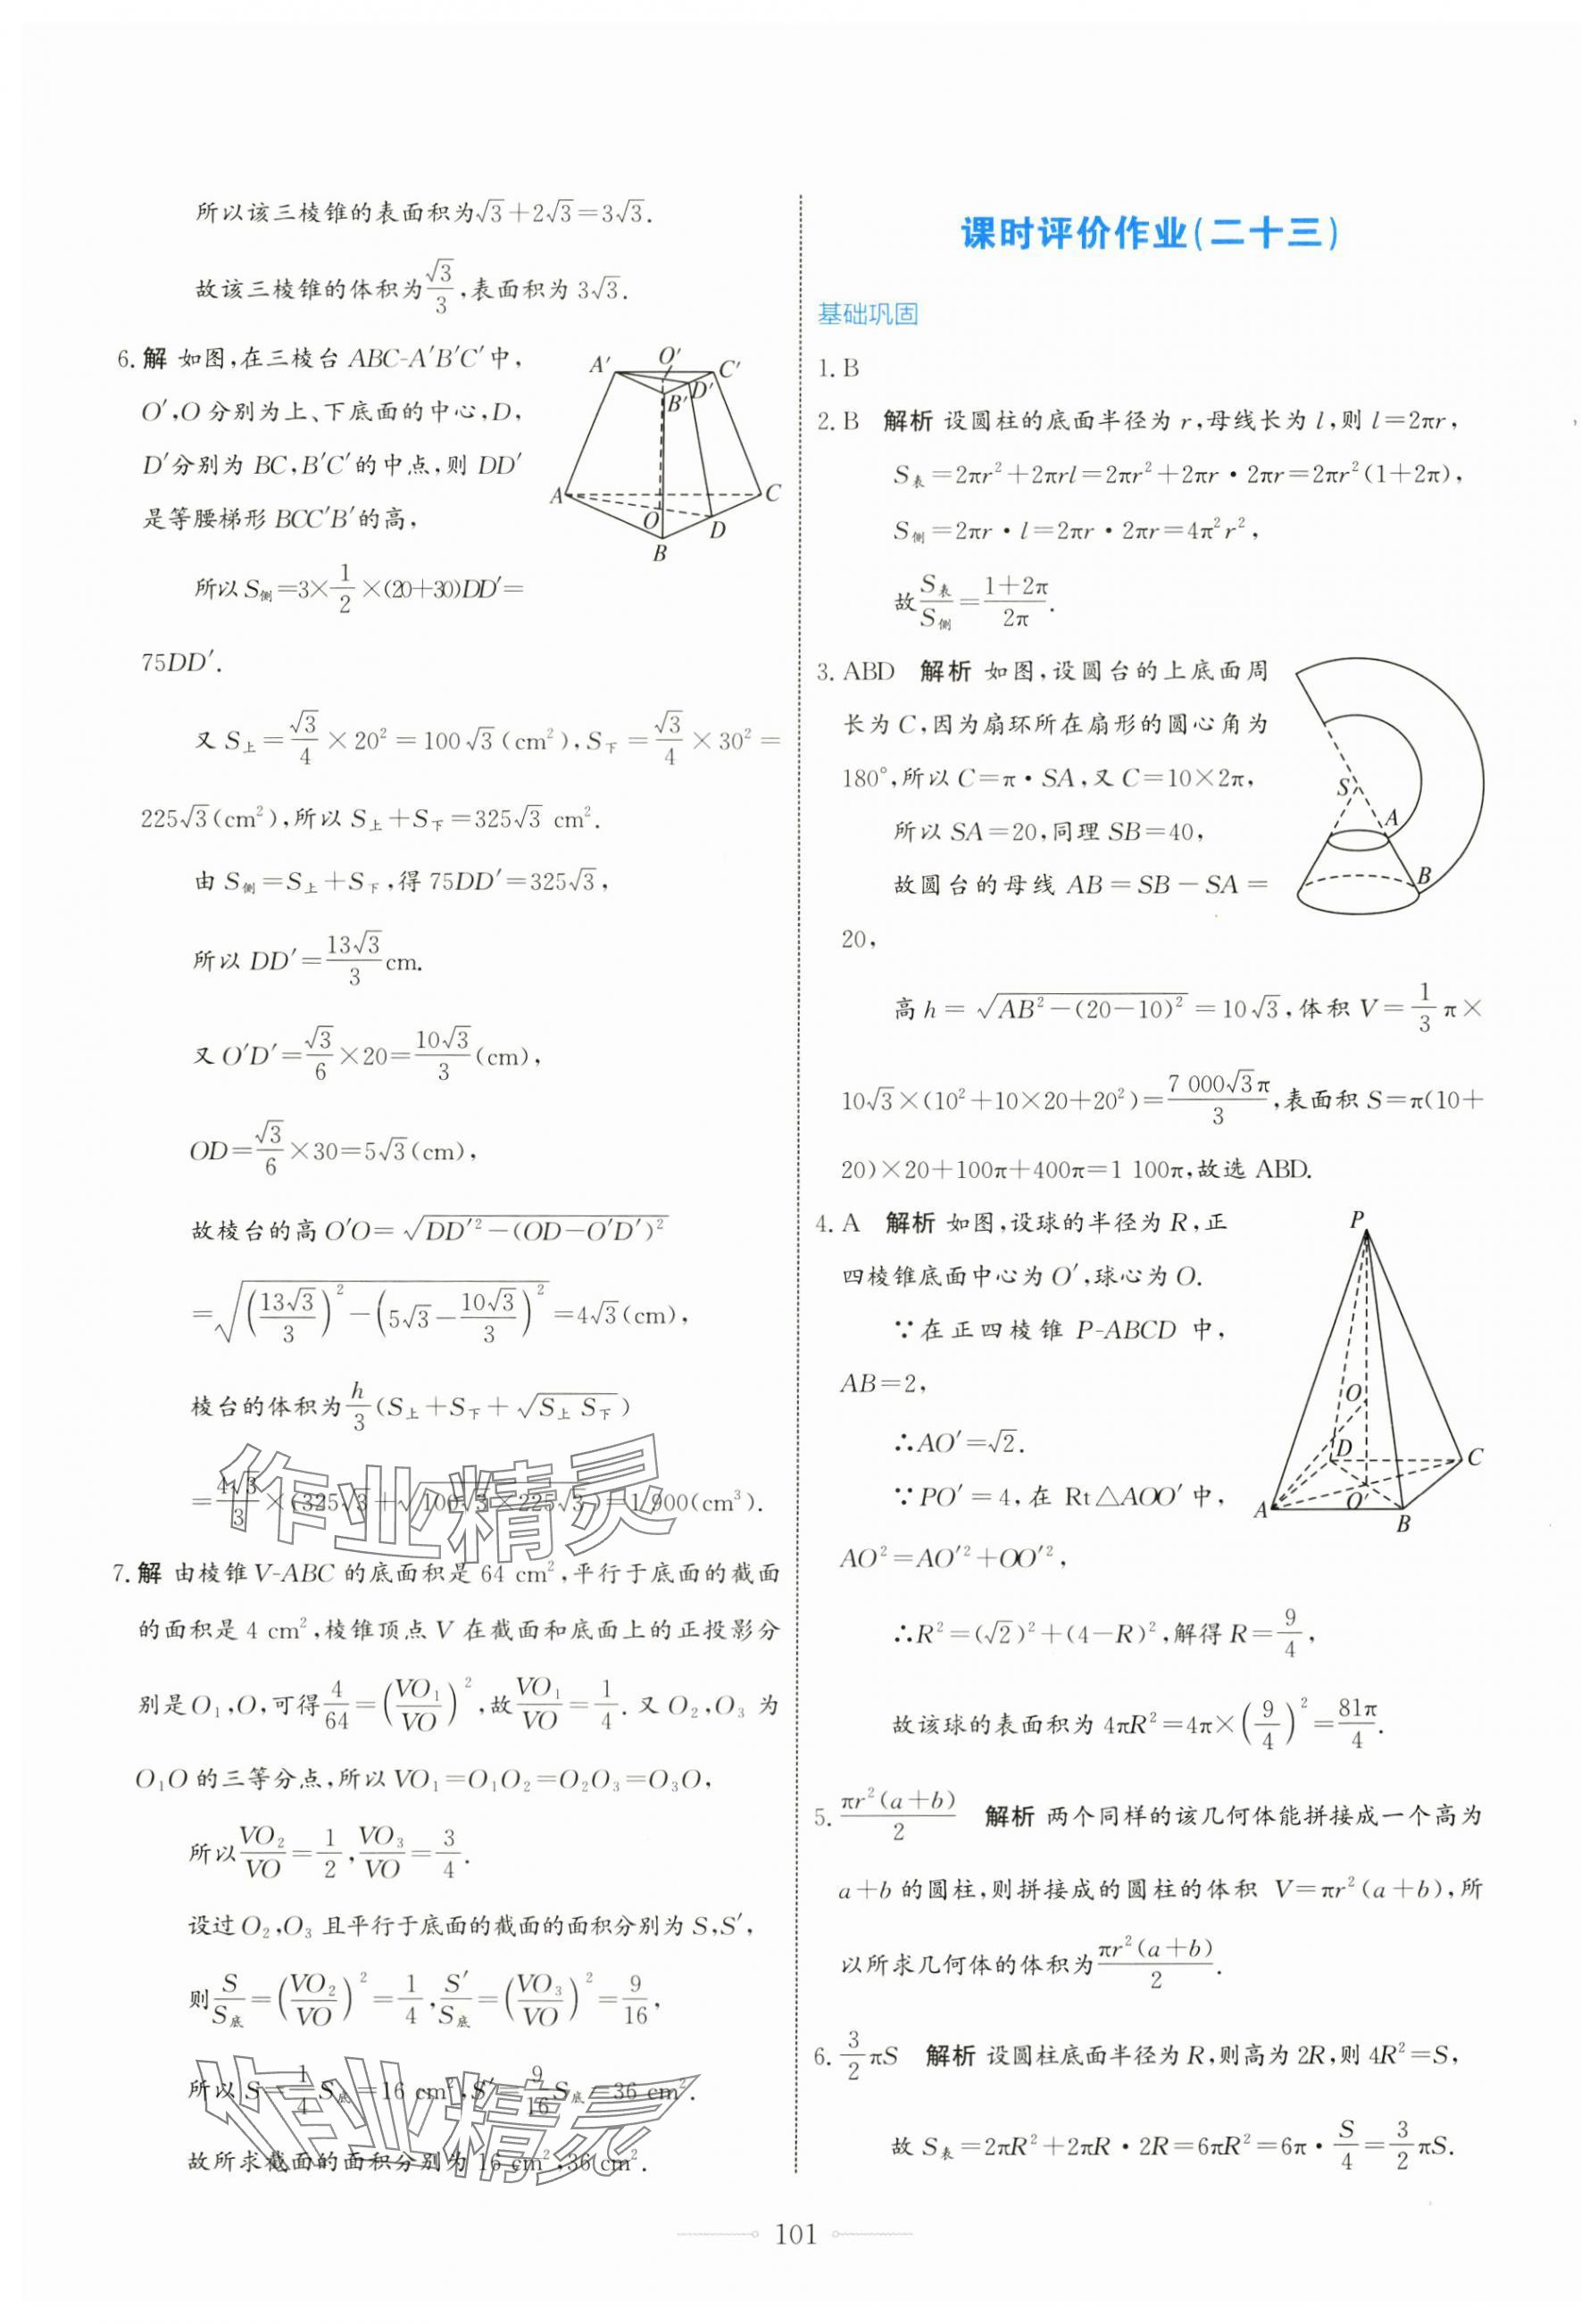 所以该三棱锥的表面积为√3+2√3=3√3.
故该三棱锥的体积为√3/3,表面积为 3√3.
6.解 如图,在三棱台 ABC-A′B′C′中,
O′,O 分别为上、下底面的中心,D,
D′分别为 BC,B′C′的中点,则 DD′
是等腰梯形 BCC′B′的高,
所以 S侧=3×1/2×(20+30)DD′=
75DD′.
A′ O′ C′ B′ D′ A O C D B
又 S上=√3/4×20²=100√3(cm²),S下=√3/4×30²=
225√3(cm²),所以 S上+S下=325√3 cm².
由 S侧=S上+S下,得 75DD′=325√3,
所以 DD′=13√3/3 cm.
又 O′D′=√3/6×20=10√3/3(cm),
OD=√3/6×30=5√3(cm),
故棱台的高 O′O=√(DD′²-(OD-O′D′)²)
=√((13√3/3)²-(5√3-10√3/3)²)=4√3(cm),
棱台的体积为h/3(S上+S下+√(S上 S下))
=4√3/3×(325√3+√(100√3×225√3))=1 900(cm³).
7.解 由棱锥 V-ABC 的底面积是 64 cm²,平行于底面的截面
的面积是 4 cm²,棱锥顶点 V 在截面和底面上的正投影分
别是 O₁,O,可得4/64=(VO₁/VO)²,故VO₁/VO=1/4.又 O₂,O₃ 为
O₁O 的三等分点,所以 VO₁=O₁O₂=O₂O₃=O₃O,
所以VO₂/VO=1/2,VO₃/VO=3/4.
设过 O₂,O₃ 且平行于底面的截面的面积分别为 S,S′,
则S/S底=(VO₂/VO)²=1/4,S′/S底=(VO₃/VO)²=9/16,
所以 S=1/4S底=16 cm²,S′=9/16S底=36 cm².
故所求截面的面积分别为 16 cm²,36 cm².
作业精灵
作业精灵
课时评价作业(二十三)
基础巩固
1.B
2.B 解析 设圆柱的底面半径为 r,母线长为 l,则 l=2πr,
S表=2πr²+2πrl=2πr²+2πr·2πr=2πr²(1+2π),
S侧=2πr·l=2πr·2πr=4π²r²,
故S表/S侧=(1+2π)/2π.
3.ABD 解析 如图,设圆台的上底面周
长为 C,因为扇环所在扇形的圆心角为
180°,所以 C=π·SA,又 C=10×2π,
所以 SA=20,同理 SB=40,
故圆台的母线 AB=SB-SA=
20,
S A B
高 h=√(AB²-(20-10)²)=10√3,体积 V=1/3π×
10√3×(10²+10×20+20²)=7 000√3π/3,表面积 S=π(10+
20)×20+100π+400π=1 100π,故选 ABD.
4.A 解析 如图,设球的半径为 R,正
四棱锥底面中心为 O′,球心为 O.
∵在正四棱锥 P-ABCD 中,
AB=2,
∴AO′=√2.
∵PO′=4,在 Rt△AOO′中,
AO²=AO′²+OO′²,
P O D C A O′ B
∴R²=(√2)²+(4-R)²,解得 R=9/4,
故该球的表面积为 4πR²=4π×(9/4)²=81π/4.
5.πr²(a+b)/2 解析 两个同样的该几何体能拼接成一个高为
a+b 的圆柱,则拼接成的圆柱的体积 V=πr²(a+b),所
以所求几何体的体积为πr²(a+b)/2.
6.3/2πS 解析 设圆柱底面半径为 R,则高为 2R,则 4R²=S,
故 S表=2πR²+2πR·2R=6πR²=6π·S/4=3/2πS.
101